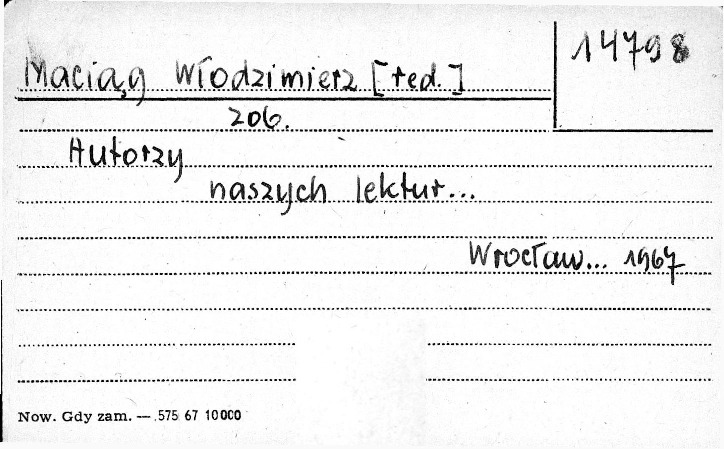 14798
Maciąg Włodzimierz [red.]
206.
Autorzy
naszych lektur...
Wrocław... 1967
Now. Gdy zam. — 575 67 10000